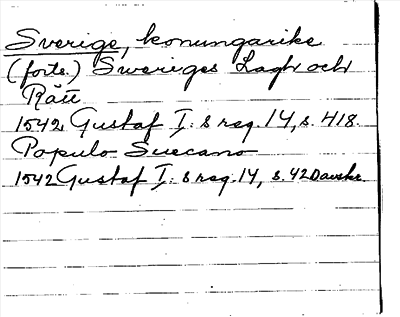 Sverige, konungarike
(forts.) Sweriges Lagh och
Rätt
1542 Gustaf I: s reg. 14, s. 418.
Populo Suecano
1542 Gustaf I: s reg. 14, s. 42